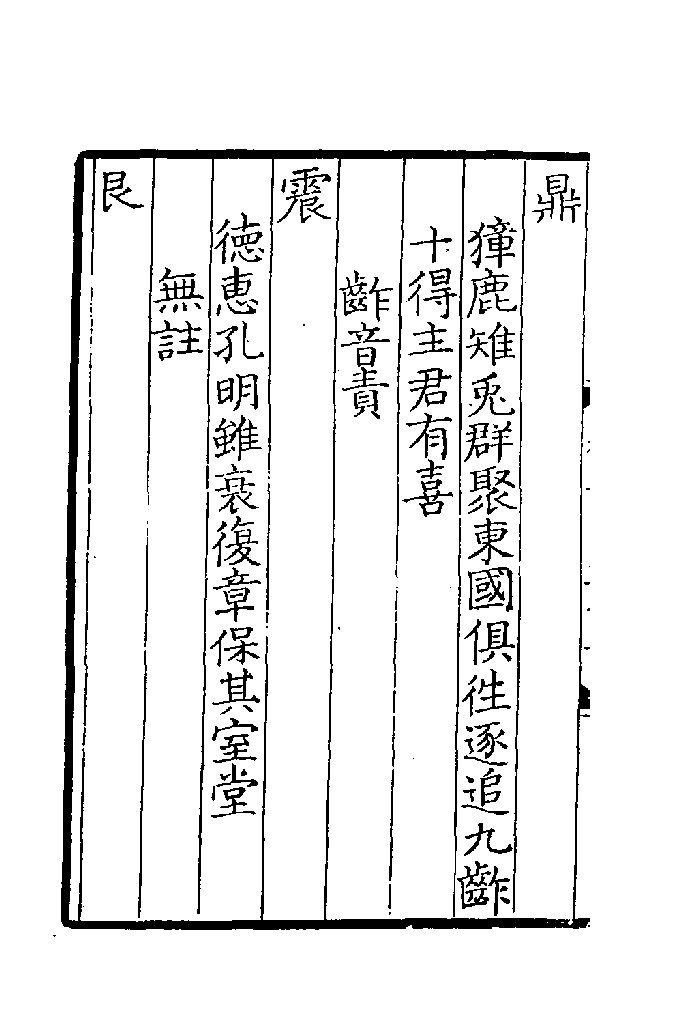 鼎
獐鹿雉兎群聚東國俱徃逐追九齚
十得主君有喜
齚音責
震
徳恵孔明雖衰復章保其室堂
無註
艮